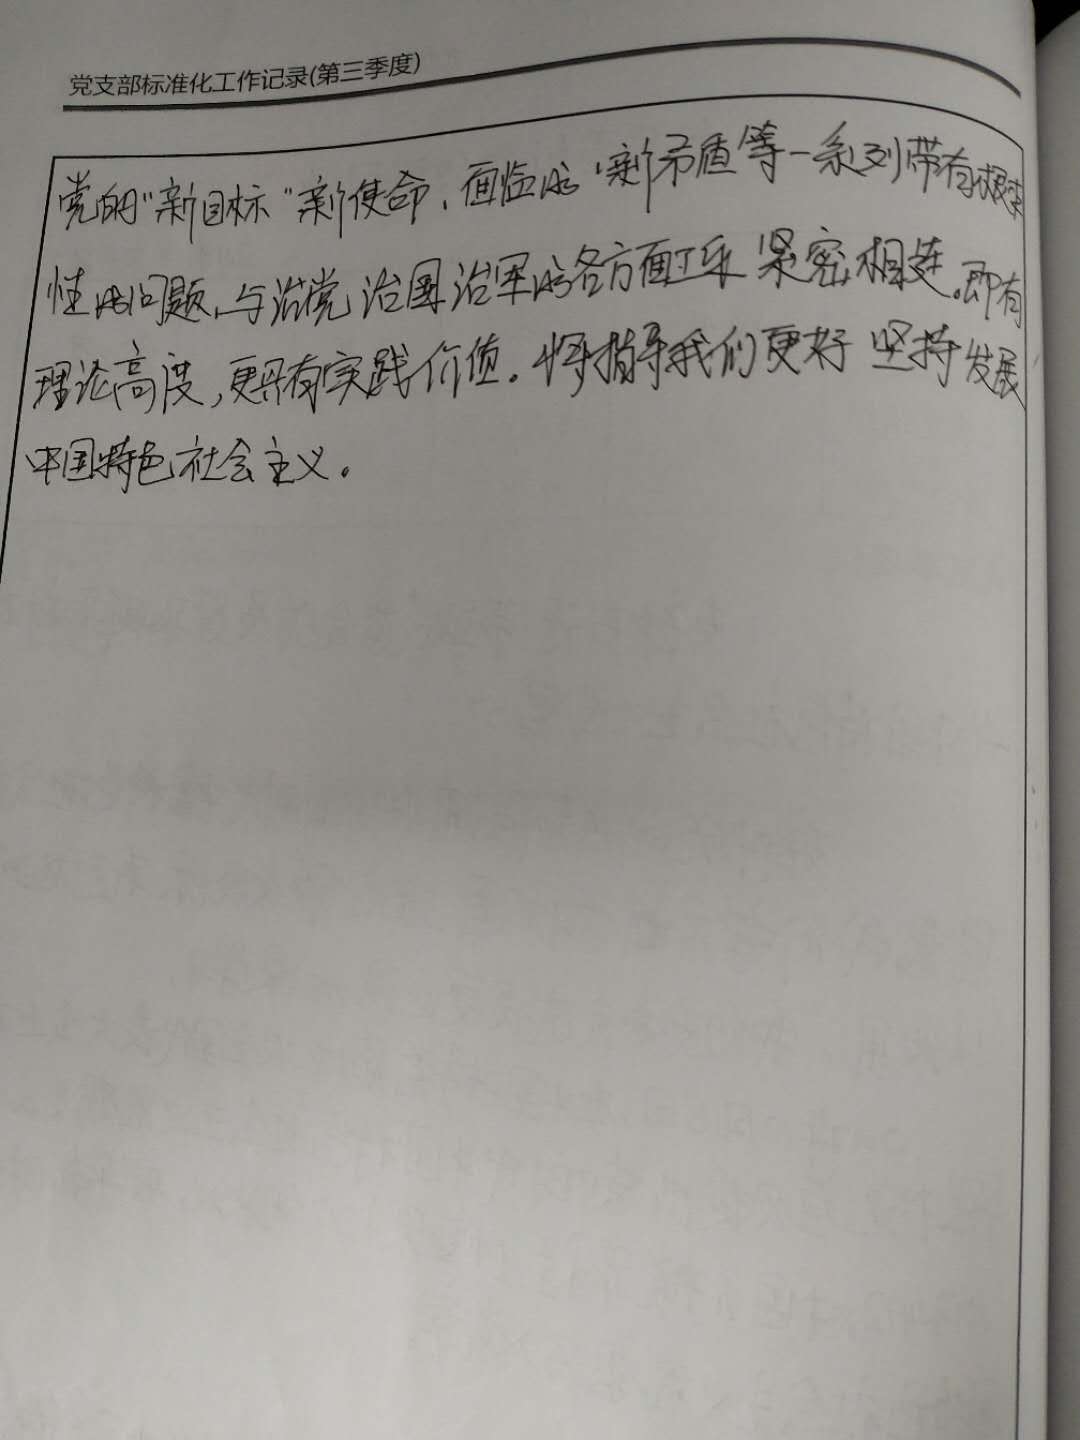 党支部标准化工作记录(第三季度)
党的“新目标“新使命，面临的‘新矛盾’等一系列带有根本
性的问题，与治党治国治军的各方面工乐紧密相连。即有
理论高度，更具有实践价值。将指导我们更好坚持发展
中国特色社会主义。